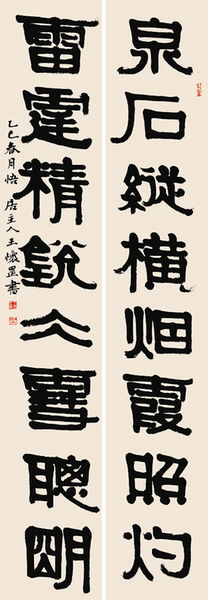 泉石縱橫烟霞照灼
雷霆精銳仌雪聰朙
乙巳春月悟居主人王懷罡書